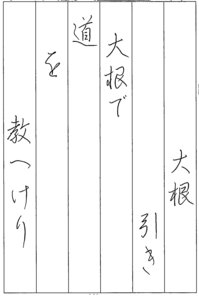 大根
引き
大根で
道
を
教へけり